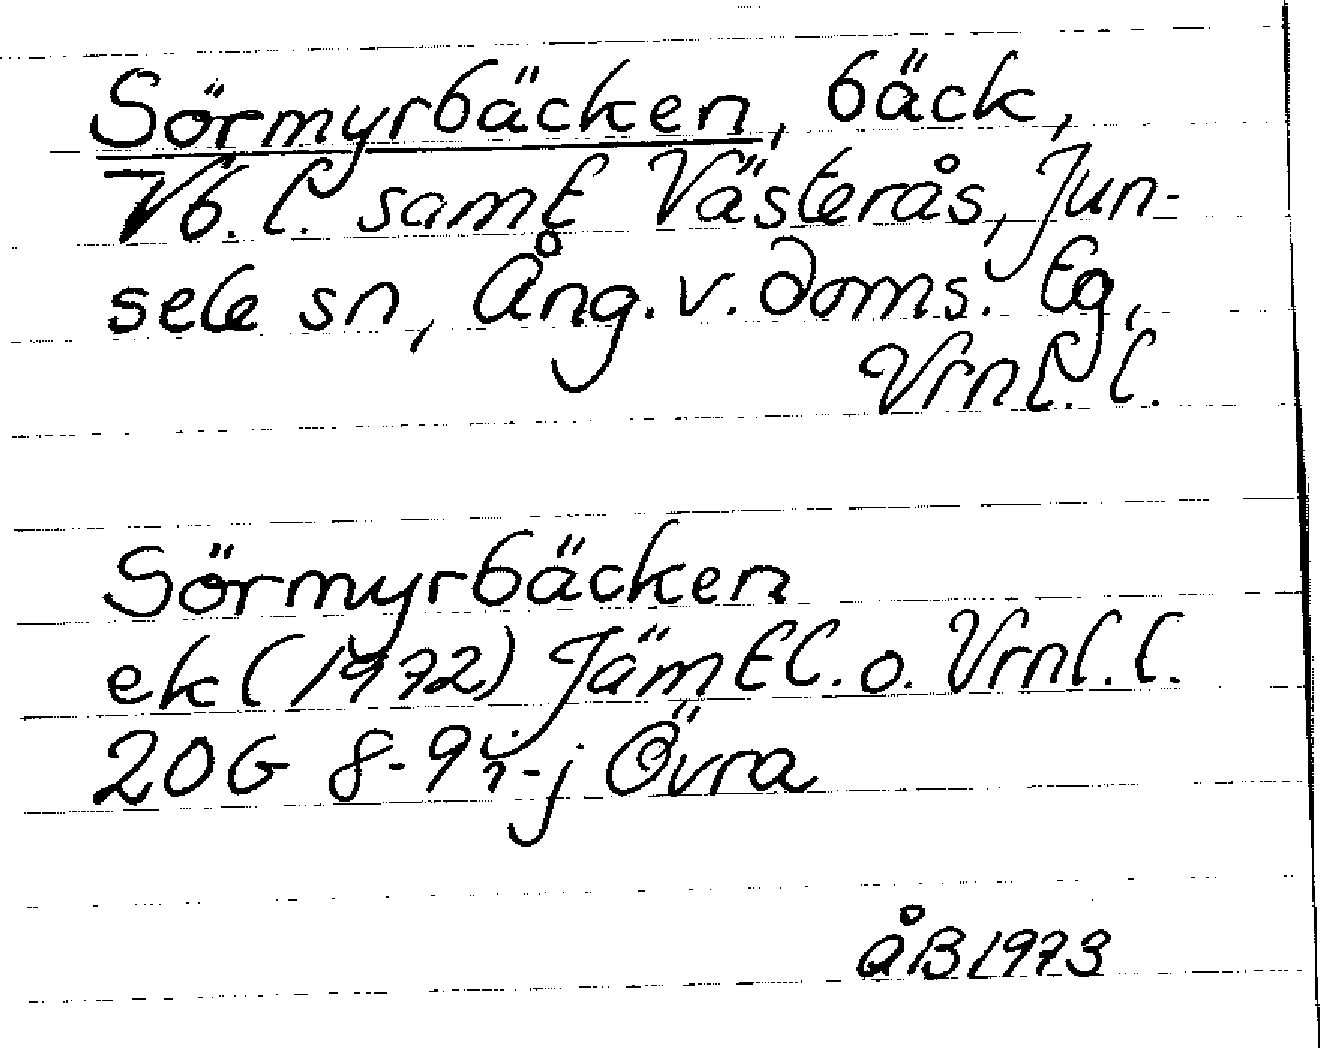 Sörmyrbäcken, bäck,
Vb. l. samt Västerås, Jun-
sele sn, Ång. v. doms. Eg,
Vrnl. l.
Sörmyrbäcken
ek (1972) Jämtl. o. Vrnl. l.
20G 8-9 i-j Övra
åB 1973